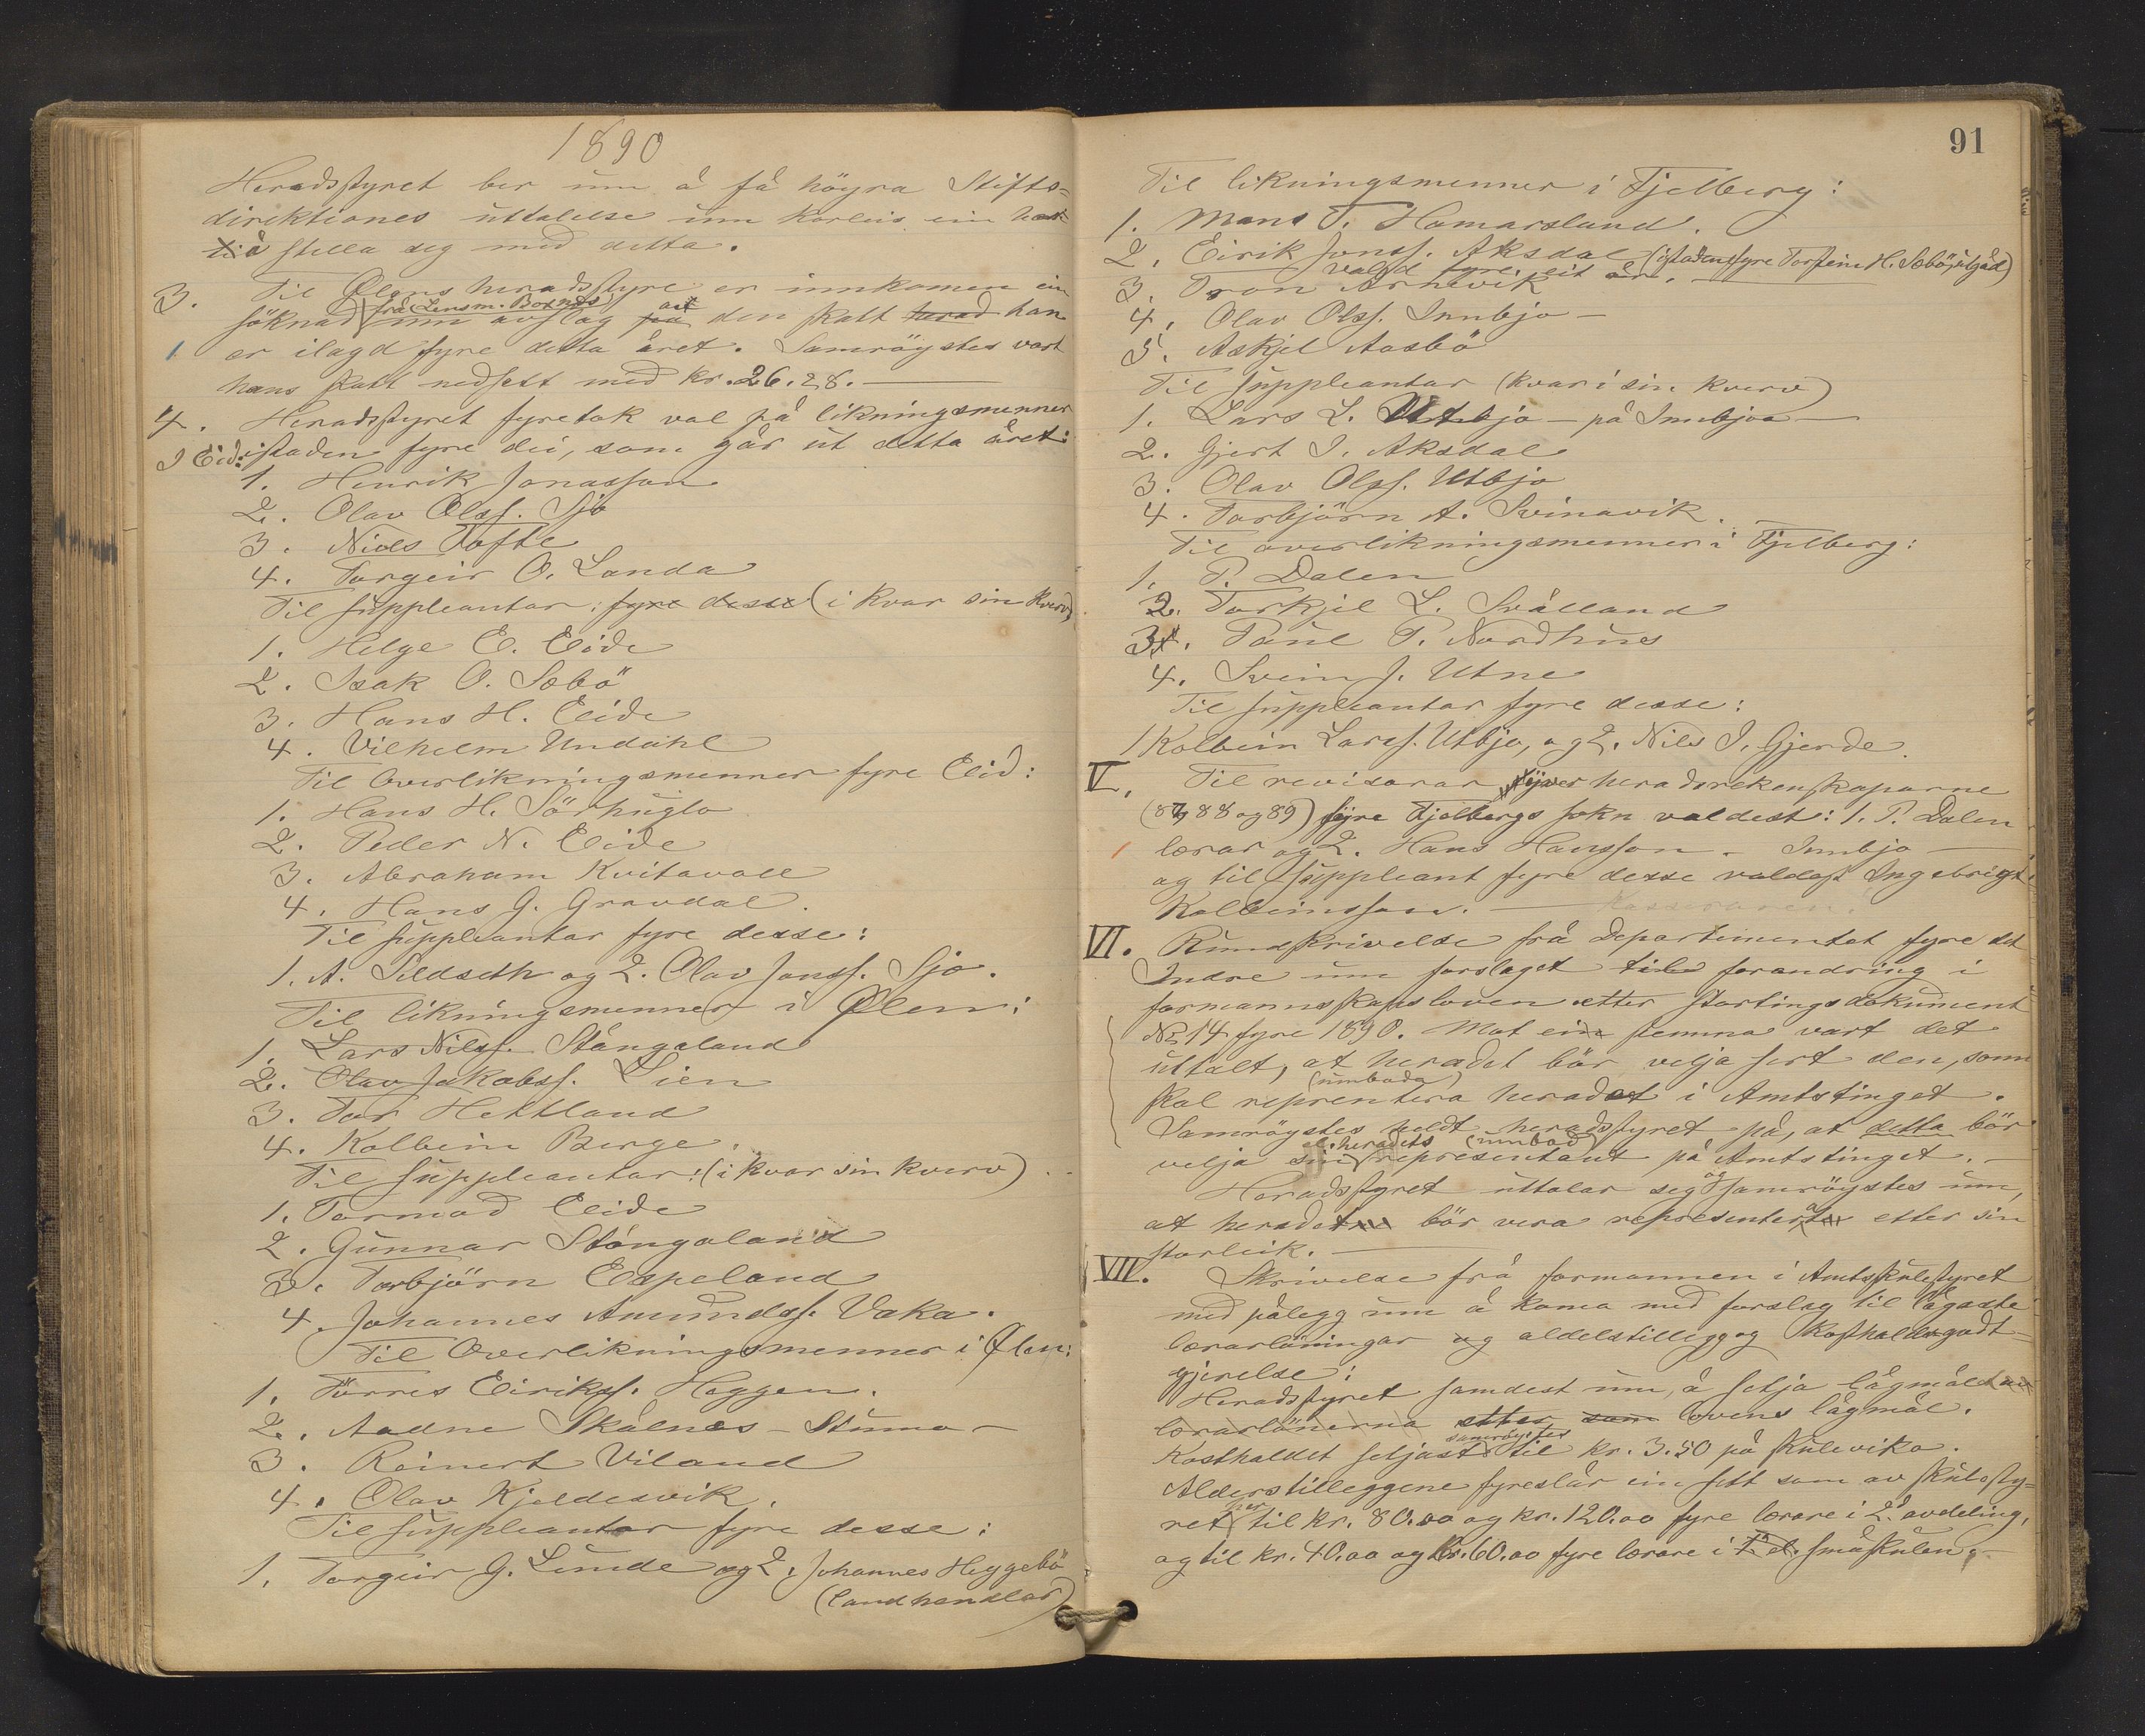 1890
Heradsstyret ber um å få högra Stifts=
direktiones uttalelse um korleis ein hev
å stella seg med detta.
3. Til Ølens heradsstyre er innkomen ein
söknad frå Lensm. Bornes um avslag av den skatt han
er ilagd fyre detta året. Samröystes vart
hans skatt nedsett med kr. 26.28.
4. Heradsstyret fyretok val på likningsmenner
I Eid: istaden fyre dei, som går ut detta året:
1. Henrik Jonasson
2. Olav Olss. Sjo
3. Niels Tofte
4. Torgeir O. Landa
Til suppleantar: fyre desse (i kvar sin kverv)
1. Helge E. Eide
2. Isak O. Sæbö
3. Hans H. Eide
4. Vilhelm Undahl
Til Overlikningsmenner fyre Eid:
1. Hans H. Sörhuglo
2. Peder N. Eide
3. Abraham Kvitavoll
4. Hans G. Gravdal.
Til suppleantar fyre desse:
1. A. Sildseth og 2. Olav Jonss. Sjo.
Til likningsmenner i Ølen:
1. Lars Nilss. Stångaland
2. Olav Jakobss. Lien
3. Tor Hettland
4. Kolbein Berge.
Til suppleantar: (i kvar sin kverv)
1. Tormod Eide
2. Gunnar Stångaland
3. Torbjörn Espeland
4. Johannes Amundss. Vaka.
Til Overlikningsmenner i Ølen:
1. Törres Eirikss. Heggen.
2. Aadne Skålnes - Stumo -
3. Reinert Viland
4. Olav Kjeldesvik.
Til suppleantar fyre desse:
1. Torgeir G. Lunde og 2. Johannes Heggebö
(landhandlar)
91
Til likningsmenner i Fjelberg:
1. Mons T. Hamarsland.
2. Eirik Jonss. Aksdal (istadenfyre Torstein H. Sæbö, utgåd)
vald fyre eit år.
3. Tron Arnevik
4. Olav Olss. Innbjo -
5. Askjel Aasbö
Til suppleantar (kvar i sin kverv)
1. Lars L. Utbjo - på Innbjoa -
2. Gjert I. Aksdal
3. Olav Olss. Utbjo
4. Torbjörn A. Svinavik.
Til overlikningsmenner i Fjelberg:
1. P. Dalen
2. Torkjel L. Svålland
3. Paul P. Nordhus
4. Svein J. Utne
Til suppleantar fyre desse:
1 Kolbein Larss. Utbjo, og 2. Nils I. Gjerde.
V. Til revisorar yver heradsrekenskaparne
(87, 88 og 89) fyre Fjelbergs sokn valdest: 1. P. Dalen
lærar og 2. Hans Hansson. Innbjo
og til suppleant fyre desse valdest Ingebrigt
Kolbeinsson.
VI. Rundskrivelse frå Departementet fyre det
Indre um forslaget til forandring i
formannskapsloven etter stortingsdokument
No 14 fyre 1890. Mot ein stemma vart det
uttalt, at heradet bör velja sert den, som
skal reprentera (umboda) heradet i Amtstinget.
Samröystes heldt heradsstyret på, at detta bör
velja sin el. heradets representant (umbod) på Amtstinget.
Heradsstyret uttalar seg og samröystes um,
at heradet bör vera representerat etter sin
storleik.
VII. Skrivelse frå formannen i Amtsskulestyret
med pålegg um å koma med forslag til lågaste
lærarlöningar og aldelstillegg og Kosthaldsgodt=
gjerelse:
Heradsstyret samdest um, å setja lågmålet av
lærarlönerna etter som lovens lågmål.
Kosthaldet setjast samröystes til kr. 3.50 på skulevika.
Alderstilleggene fyreslår ein sett som av skulesty=
ret her til kr. 80.00 og kr. 120.00 fyre lærare i 2. avdeling,
og til kr. 40.00 og kr. 60.00 fyre lærare i småskulen.